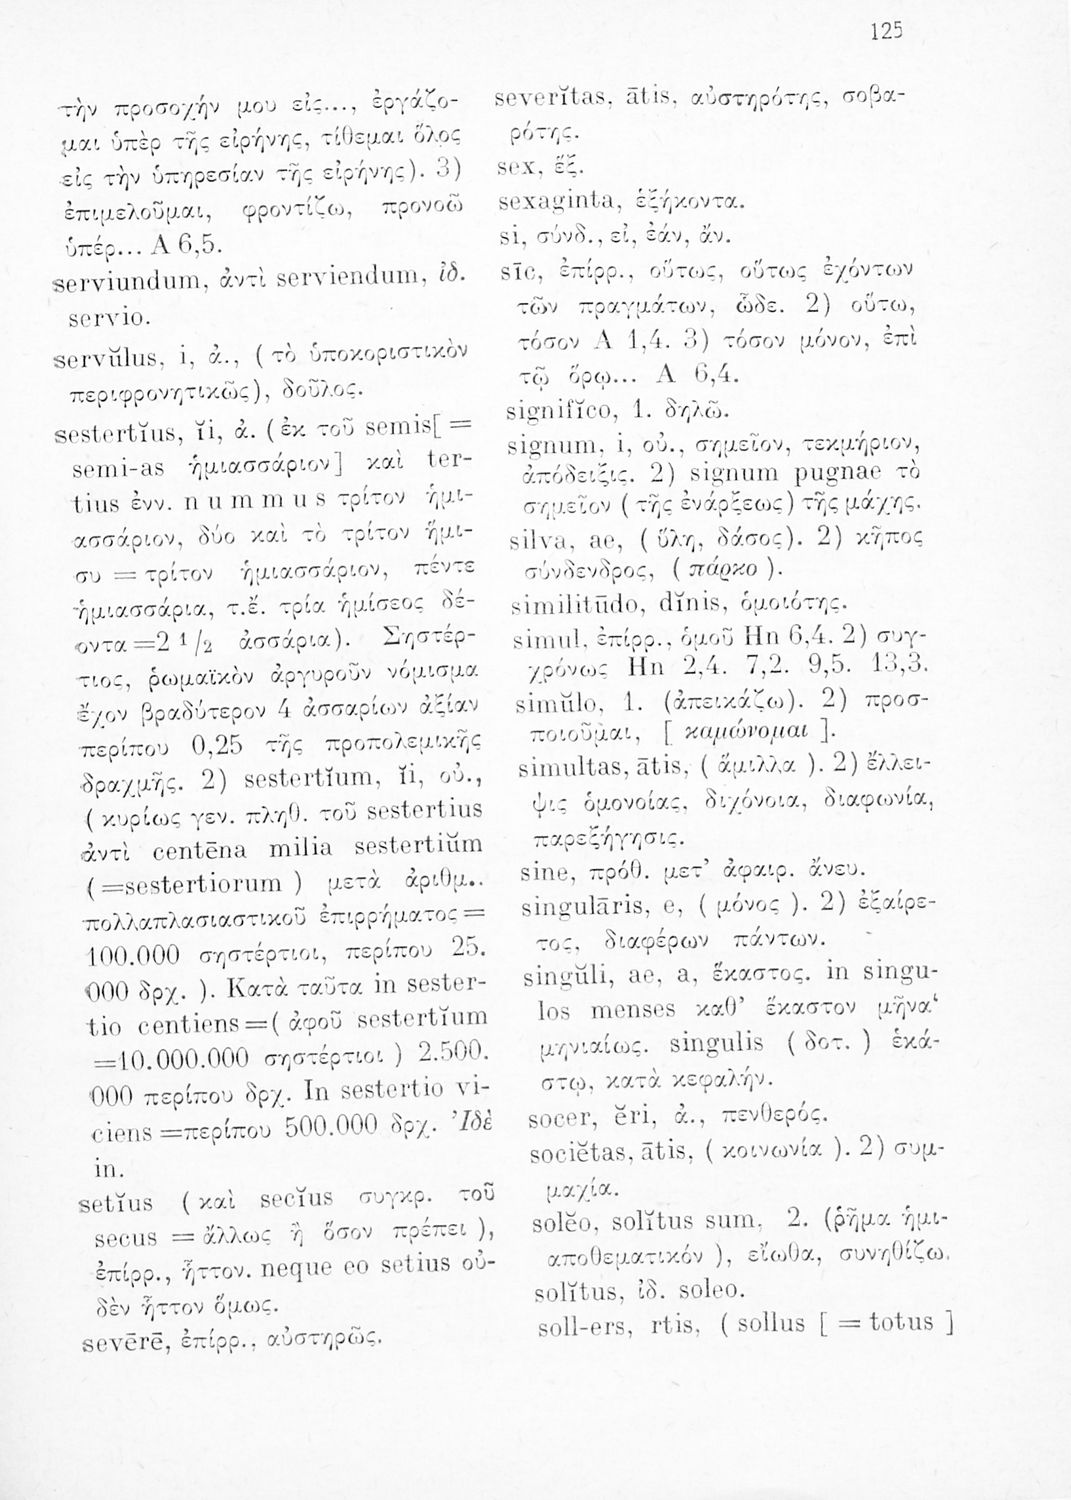 125
τὴν προσοχήν μου εἰς..., ἐργάζο-
μαι ὑπὲρ τῆς εἰρήνης, τίθεμαι ὅλος
εἰς τὴν ὑπηρεσίαν τῆς εἰρήνης). 3)
ἐπιμελοῦμαι, φροντίζω, προνοῶ
ὑπέρ... A 6,5.
serviundum, ἀντὶ serviendum, ἰδ.
servio.
servŭlus, i, ἀ., (τὸ ὑποκοριστικὸν
περιφρονητικῶς), δοῦλος.
sestertĭus, ĭi, ἀ. (ἐκ τοῦ semis[ =
semi-as ἡμιασσάριον] καὶ ter-
tius ἐνν. nummus τρίτον ἡμι-
ασσάριον, δύο καὶ τὸ τρίτον ἥμι-
συ = τρίτον ἡμιασσάριον, πέντε
ἡμιασσάρια, τ.ἔ. τρία ἡμίσεος δέ-
οντα=2 1/2 ἀσσάρια). Σηστέρ-
τιος, ῥωμαϊκὸν ἀργυροῦν νόμισμα
ἔχον βραδύτερον 4 ἀσσαρίων ἀξίαν
περίπου 0,25 τῆς προπολεμικῆς
δραχμῆς. 2) sestertĭum, ĭi, οὐ.,
( κυρίως γεν. πληθ. τοῦ sestertius
ἀντὶ centēna milia sestertiŭm
(=sestertiorum ) μετὰ ἀριθμ..
πολλαπλασιαστικοῦ ἐπιρρήματος =
100.000 σηστέρτιοι, περίπου 25.
000 δρχ. ). Κατὰ ταῦτα in sester-
tio centiens=( ἀφοῦ sestertĭum
=10.000.000 σηστέρτιοι ) 2.500.
000 περίπου δρχ. In sestertio vi-
ciens =περίπου 500.000 δρχ. Ἰδὲ
in.
setĭus ( καὶ secĭus συγκρ. τοῦ
secus = ἄλλως ἢ ὅσον πρέπει ),
ἐπίρρ., ἧττον. neque eo setius οὐ-
δὲν ἧττον ὅμως.
sevērē, ἐπίρρ., αὐστηρῶς.
severĭtas, ātis, αὐστηρότης, σοβα-
ρότης.
sex, ἕξ.
sexaginta, ἑξήκοντα.
si, σύνδ., εἰ, ἐάν, ἄν.
sīc, ἐπίρρ., οὕτως, οὕτως ἐχόντων
τῶν πραγμάτων, ὧδε. 2) οὕτω,
τόσον A 1,4. 3) τόσον μόνον, ἐπὶ
τῷ ὅρῳ... A 6,4.
signifĭco, 1. δηλῶ.
signum, i, οὐ., σημεῖον, τεκμήριον,
ἀπόδειξις. 2) signum pugnae τὸ
σημεῖον ( τῆς ἐνάρξεως) τῆς μάχης.
silva, ae, ( ὕλη, δάσος). 2) κῆπος
σύνδενδρος, ( πάρκο ).
similitūdo, dĭnis, ὁμοιότης.
simul, ἐπίρρ., ὁμοῦ Hn 6,4. 2) συγ-
χρόνως Hn 2,4. 7,2. 9,5. 13,3.
simŭlo, 1. (ἀπεικάζω). 2) προσ-
ποιοῦμαι, [ καμώνομαι ].
simultas, ātis, ( ἅμιλλα ). 2) ἔλλει-
ψις ὁμονοίας, διχόνοια, διαφωνία,
παρεξήγησις.
sine, πρόθ. μετ’ ἀφαιρ. ἄνευ.
singulāris, e, ( μόνος ). 2) ἐξαίρε-
τος, διαφέρων πάντων.
singŭli, ae, a, ἕκαστος. in singu-
los menses καθ’ ἕκαστον μῆνα‘
μηνιαίως. singulis ( δοτ. ) ἑκά-
στῳ, κατὰ κεφαλήν.
socer, ĕri, ἀ., πενθερός.
sociĕtas, ātis, ( κοινωνία ). 2) συμ-
μαχία.
solĕo, solĭtus sum, 2. (ῥῆμα ἡμι-
αποθεματικόν ), εἴωθα, συνηθίζω.
solĭtus, ἰδ. soleo.
soll-ers, rtis, ( sollus [ = totus ]